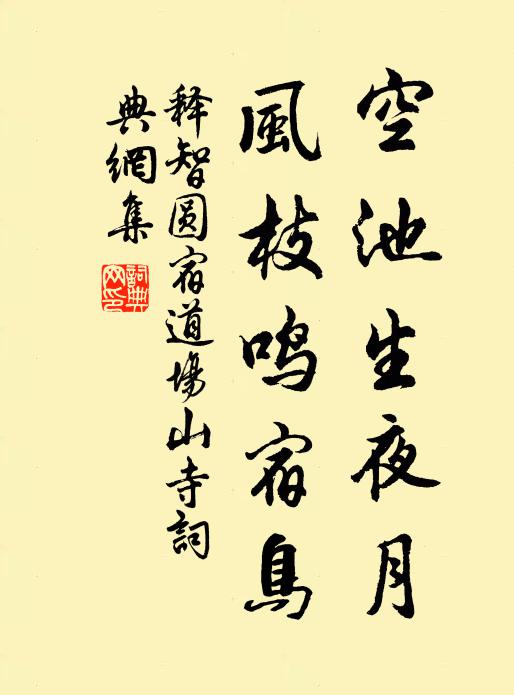 空池生夜月
風枝鸣宿鳥
释智圆宿道場山寺詞
典網集
詞典
网印